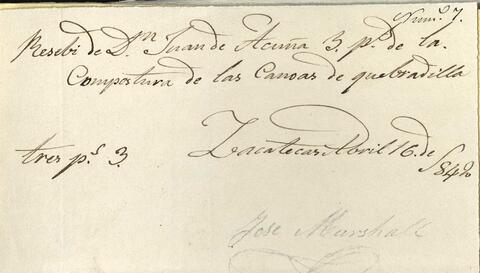 Num.º 7.
Resebi de D.ⁿ Juan de Acuña 3. p.ˢ de la
Compostura de las Canoas de quebradilla
Zacatecas Abril 16. de
tres p.ˢ 3.
Jose Marshall